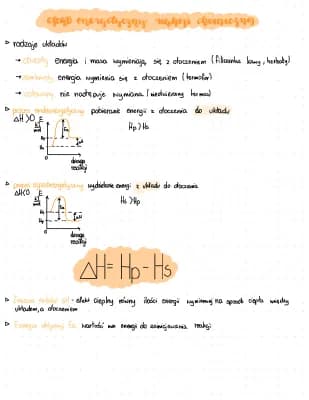 efekt energetyczny reakcji chemicznej
rodzaje układów
→ otwarty energia i masa wymieniają się z otoczeniem (filiżanka kawy, herbaty)
→ zamknięty energia wymienia się z otoczeniem (termofor)
→ izolowany nie następuje wymiana (
proces endoenergetyczny pobieranie energii z otoczenia do układu
ΔH>0 E
Hp>Hs
Ea
ΔH
0
droga
reakcji
proces egzoenergetyczny wydzielanie energii z układu do otoczenia
ΔH<0 E
Hs>Hp
Ea
ΔH
0
droga
reakcji
ΔH= Hp-Hs
ΔH - efekt cieplny równy ilości energii wymienionej na sposób ciepła między
układem, a otoczeniem
Energia aktywacji Ea wartość energii do zainicjowania reakcji